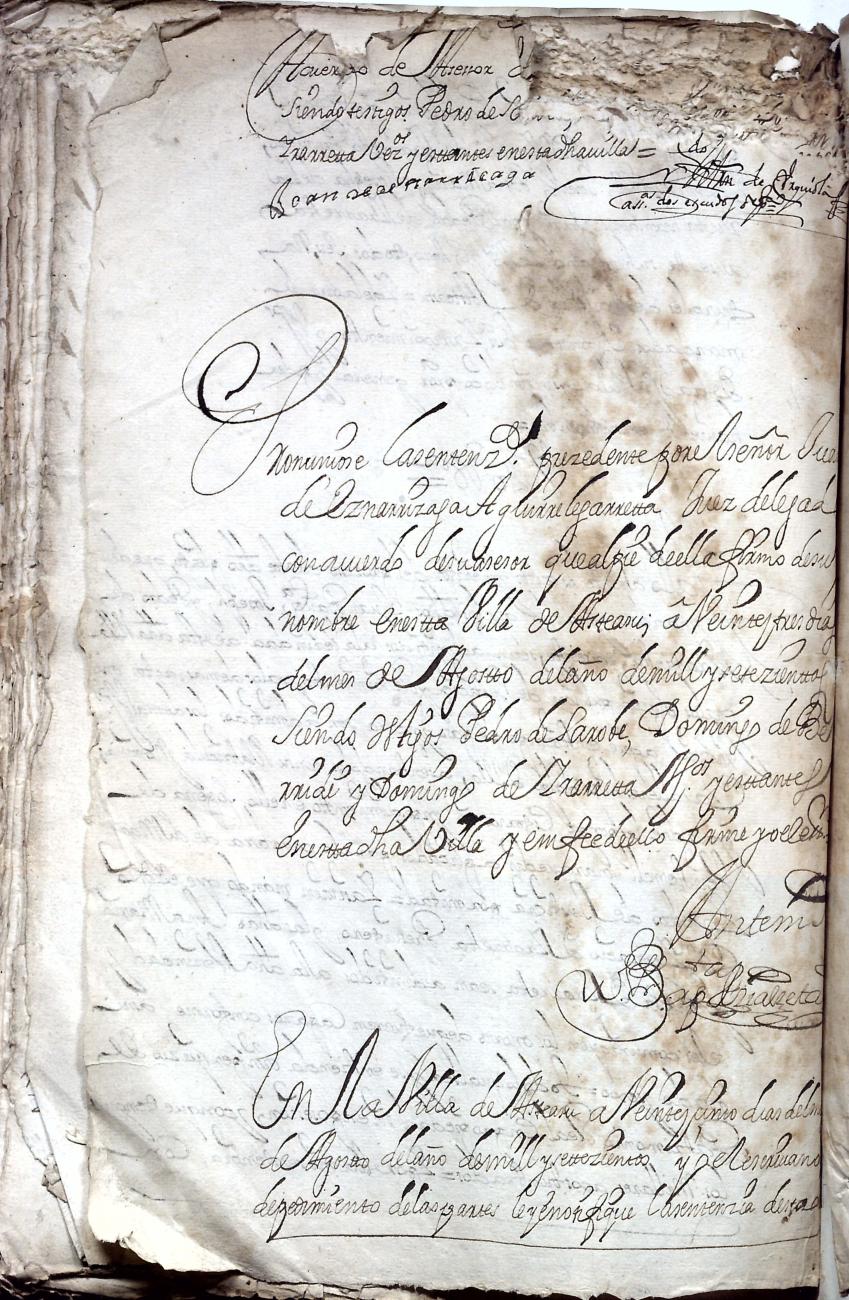 Acuerdo de Asesor
siendo testigos Pedro de
Yrarretta Vezos y esttantes enestadha villa =
Joan de
de
assa dos escudos
Pronuncióse Lasentenzª. prezedente porel señor Jua
de Oznarrizaga Aguirrelegarretta Juez delegad
conacuerdo desuasesor quealpie deella firmo desu
nombre enestta Villa de Asteasu â Veintteytres dias
delmes de Agostto delaño demill y setezienttos
siendo ttgos Pedro de Larobe, Domingo de Be
rridi y Domingo de Yrarretta Vzos. y esttantes
enesttadha Villa y emfee deello firme yo el essno
Antemi
Bap Yrialzeta
En la Villa de Asteasu a Veintteycinco dias delm
de Agostto delaño demill y settezientos, yo el escrivano
depedimiento delas partes ley e notifique Lasentenzia desta